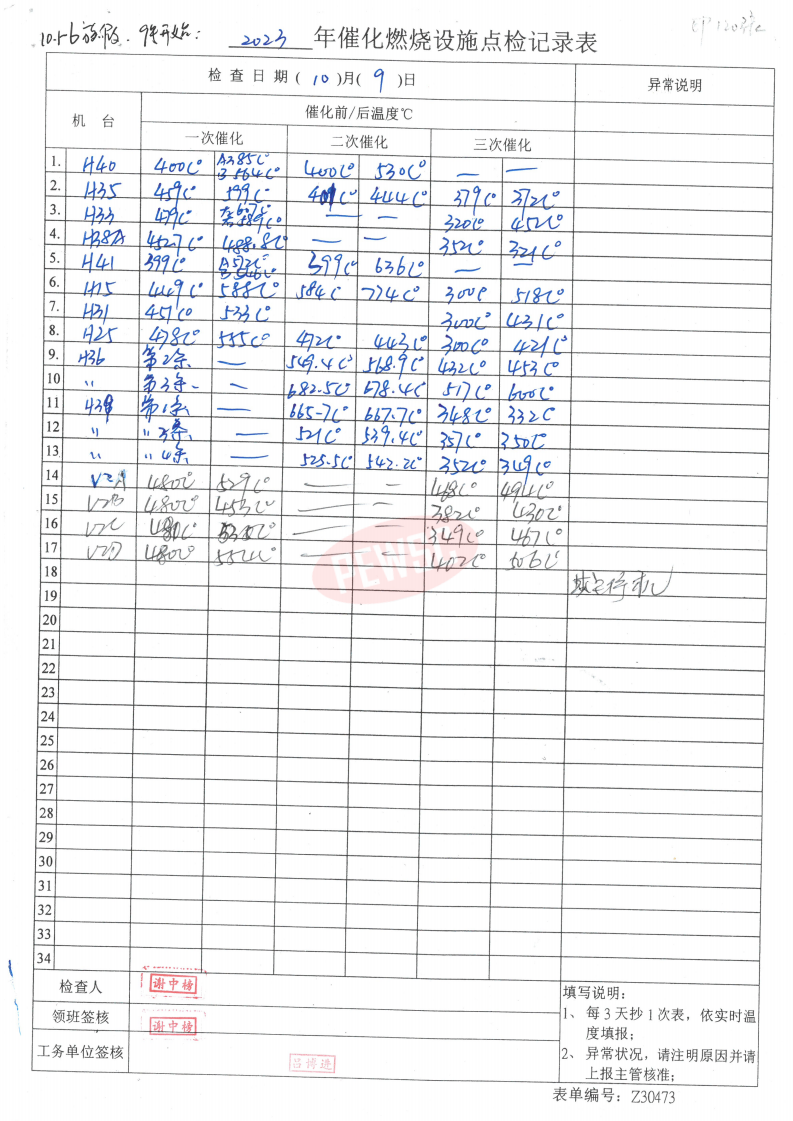 2023 年催化燃烧设施点检记录表
检查日期(10)月(9)日 异常说明
机台 催化前/后温度℃
一次催化 二次催化 三次催化
1. H40 400C° A385C° B564C° 400C° 530C° — —
2. H35 459C° 599C° 444C° 379C° 372C°
3. H33 479C° — — 320C° 452C°
4. H38A 452.7C° 488.8C° — — 352C° 321C°
5. H41 399C° 399C° 636C° — —
6. H15 449C° 588C° 584C° 774C° 300C° 518C°
7. H31 451C° 533C° 300C° 431C°
8. H25 478C° 555C° 472C° 443C° 300C° 421C°
9. H36 第2条 — 549.4C° 568.9C° 432C° 453C°
10 〃 第3条 — 682.5C° 678.4C° 517C° 600C°
11 第1条 — 665.7C° 667.7C° 348C° 332C°
12 〃 〃3条 — 521C° 539.4C° 357C° 350C°
13 〃 〃4条 — 525.5C° 542.2C° 352C° 349C°
14 V2A 480C° 529C° — — 148C° 494C°
15 V2B 480C° 453C° — — 382C° 430C°
16 V2C — — 349C° 467C°
17 V2D 480C° 552C° — — 402C° 506C°
PEWSC
18
19
20
21
22
23
24
25
26
27
28
29
30
31
32
33
34
检查人 谢中榜
领班签核 谢中榜
工务单位签核 吕博进
填写说明：
1、每3天抄1次表，依实时温
度填报；
2、异常状况，请注明原因并请
上报主管核准；
表单编号：Z30473